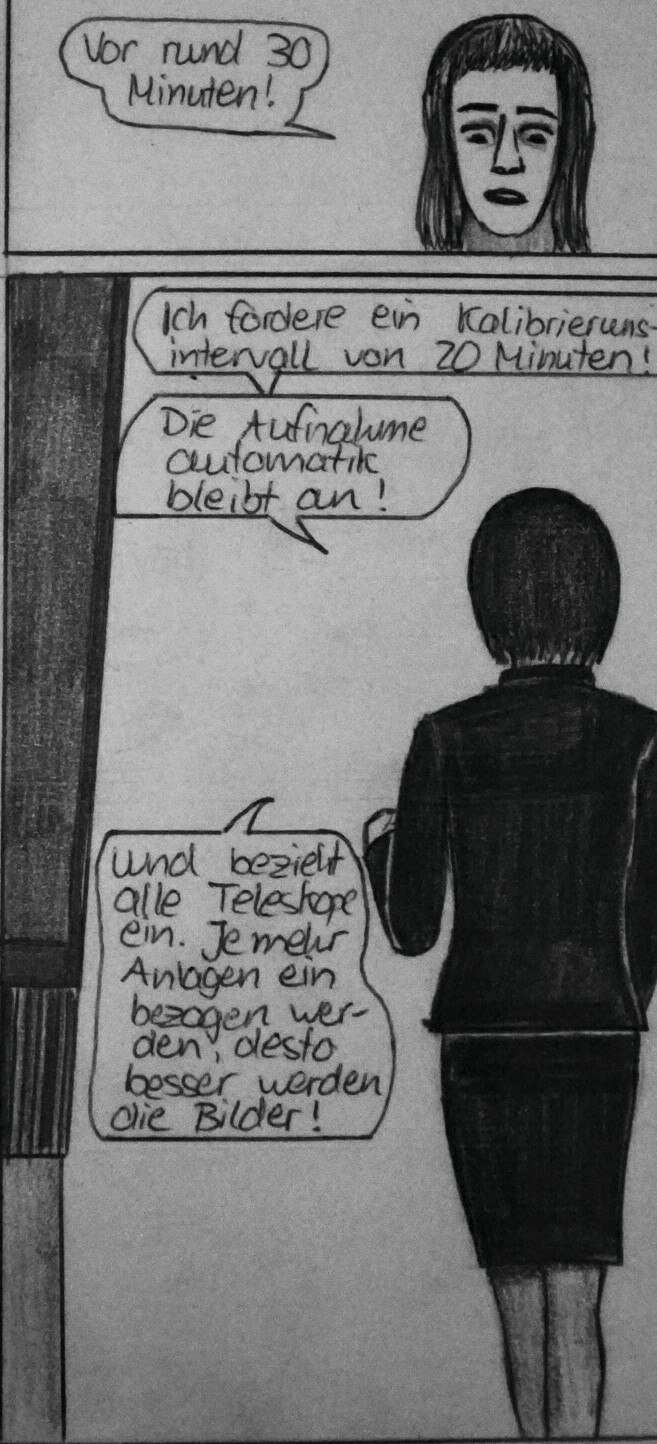 Vor rund 30
Minuten!
Ich fordere ein Kalibrieruns-
intervall von 20 Minuten!
Die Aufnahme
automatik
bleibt an!
Und bezieht
alle Teleskope
ein. Je mehr
Anlagen ein
bezogen wer-
den, desto
besser werden
die Bilder!